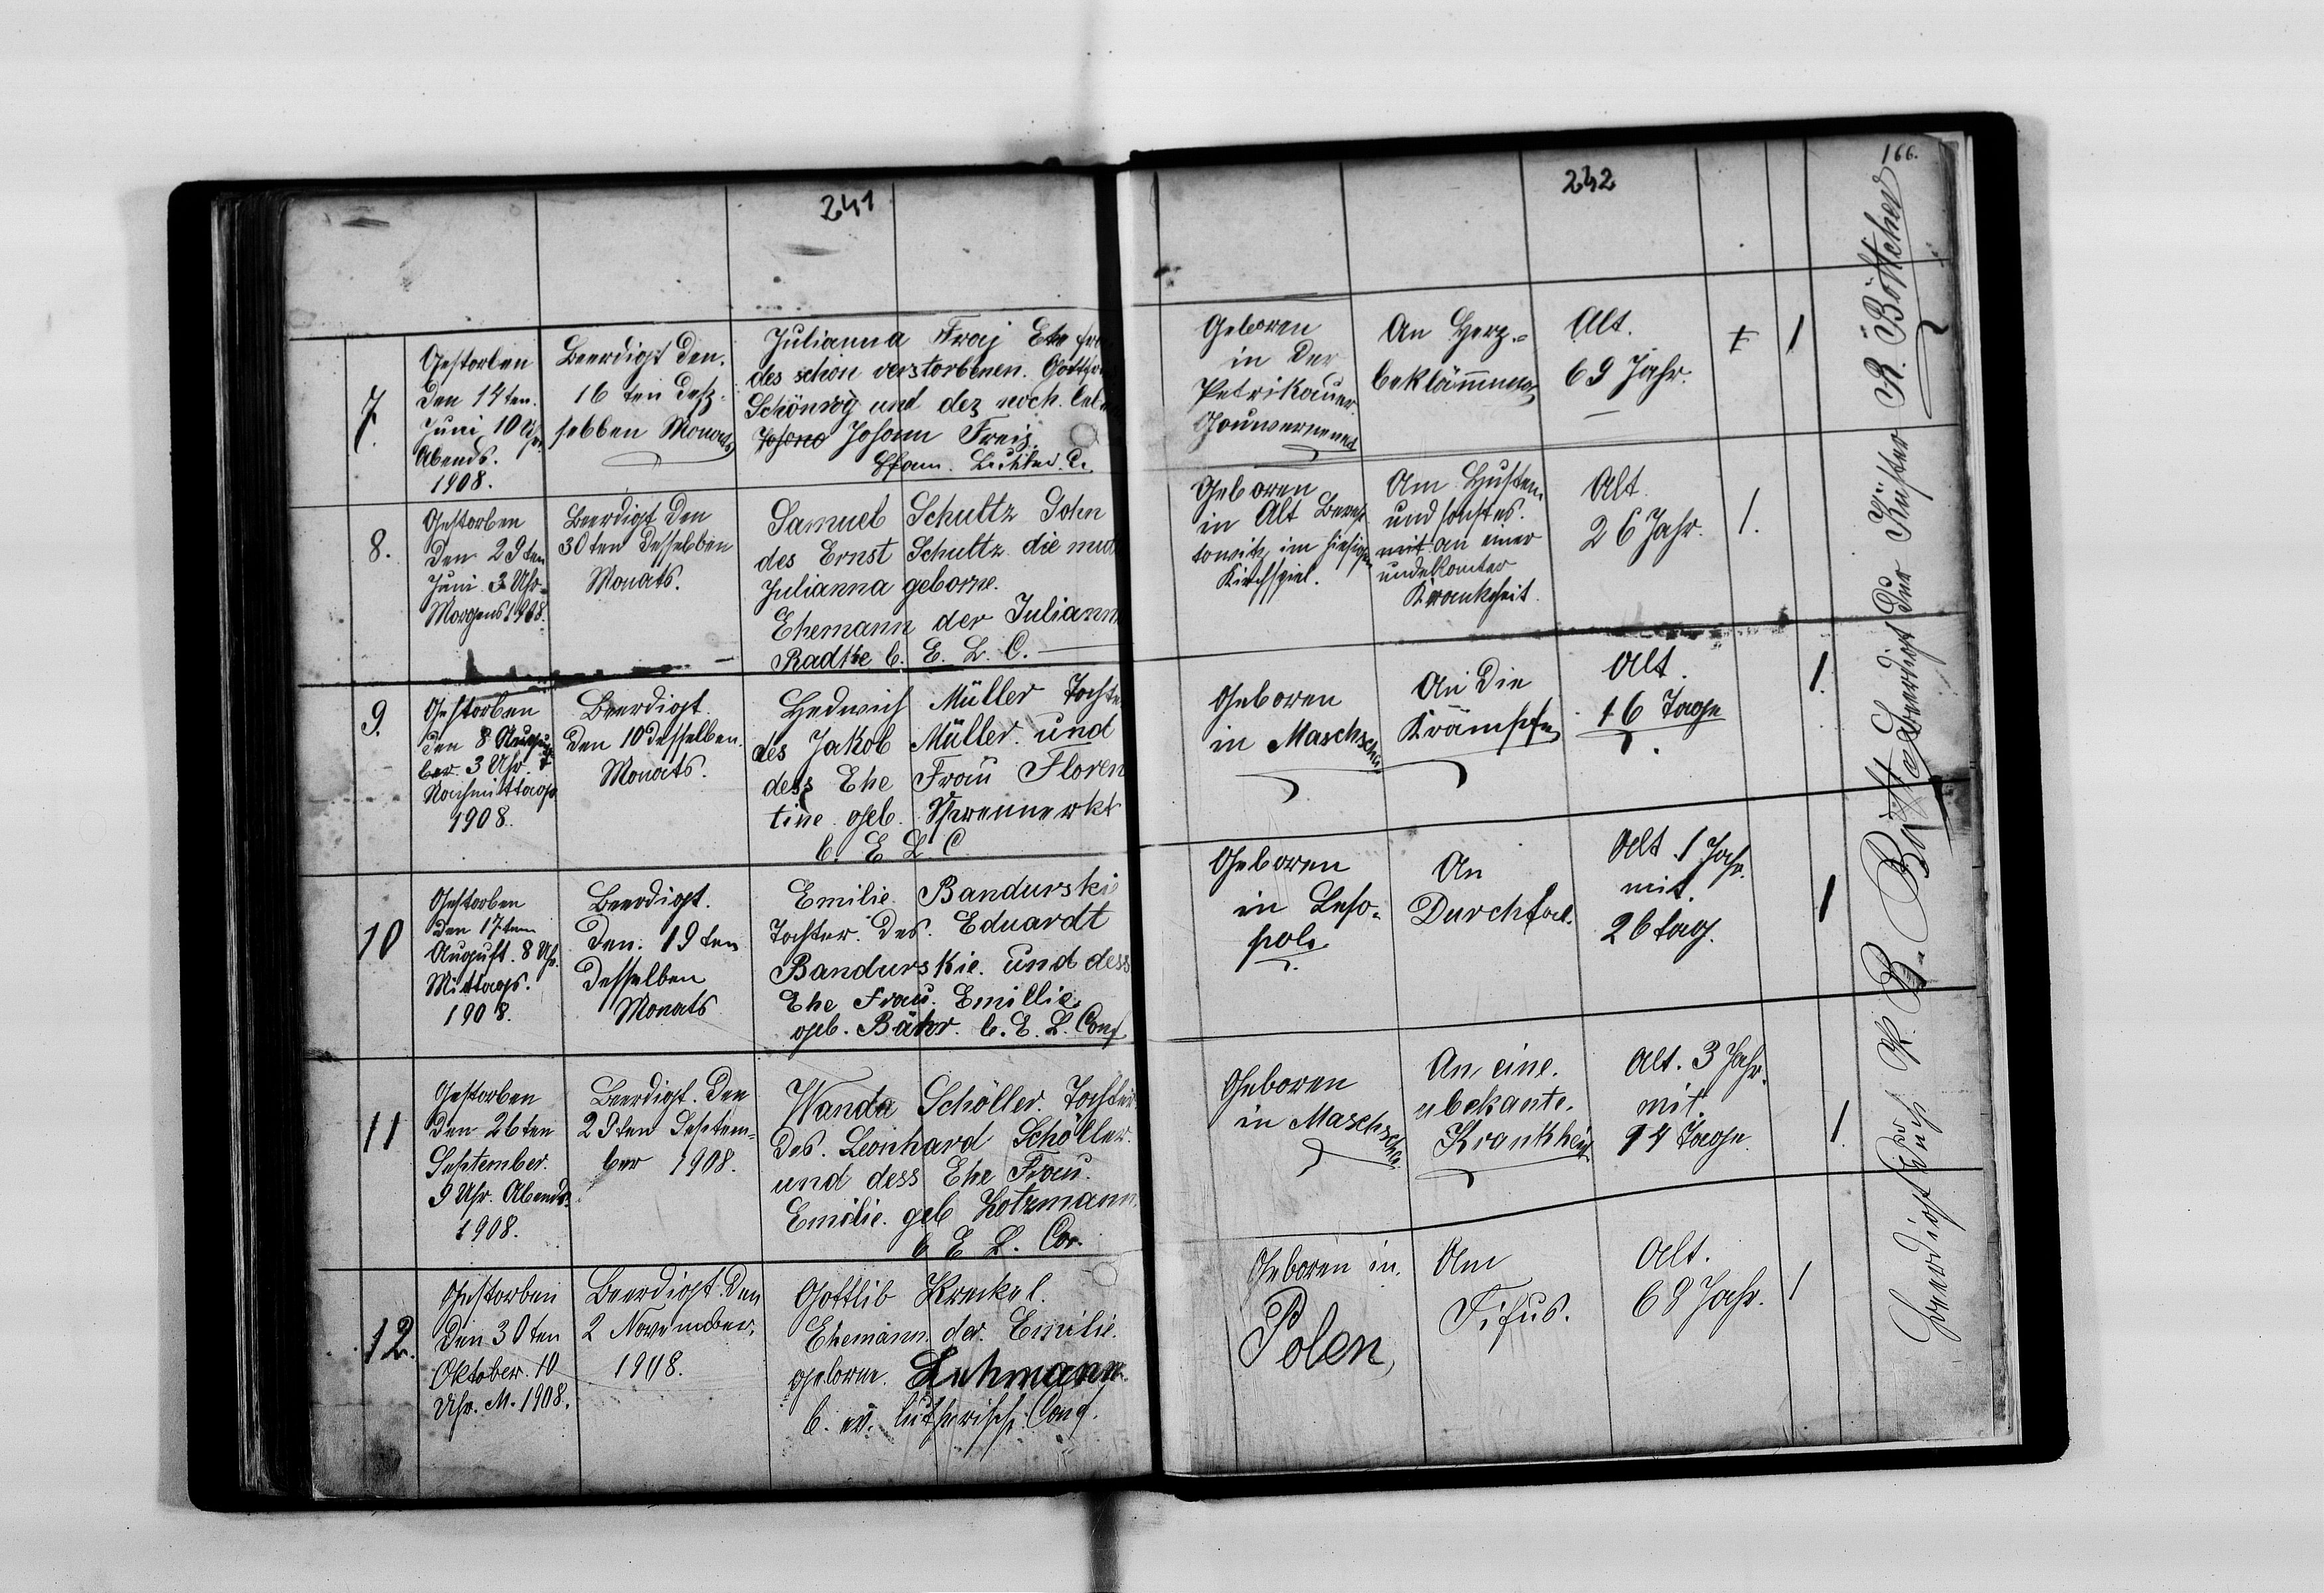 241
7.
Gestorben
den 14ten.
Juni 10 Uhr
Abends.
1908.
Beerdigt den.
16 ten desz-
selben Monats
Julianna Fraj Ehe
des schon verstorbenen.
Schönrog und dez noch
Johann Freiz.
8.
Gestorben
den 29ten
Juni 3 Uhr
Morgens 1908.
Beerdigt den
30ten desselben
Monats.
Samuel Schultz Sohn
des Ernst Schultz die
Julianna geborne.
Ehemann der
Radtke b. E. L. C.
9.
Gestorben
den 8
ber. 3 Uhr.
Nachmittags
1908.
Beerdigt.
den 10 desselben.
Monats.
Hedwich Müller
des Jakob Müller. und
dess Ehe Frau Floren
tine. geb.
b. E L. C
10
Gestorben
den 17.ten
August. 8 Uhr.
Mittags.
1908.
Beerdigt.
den. 19ten
desselben
Monats
Emilie. Bandurskie
Tochter. des. Eduardt
Bandurskie. und dess
Ehe Frau. Emillie.
geb. Bähr. b. E. L. Conf
11
Gestorben
den 26ten
September.
9 Uhr. Abends.
1908.
Beerdigt. den
29ten Septem-
ber 1908.
Wanda Schöller. Tochter.
des. Leonhard Schöller.
und dess Ehe Frau.
Emilie. geb
b E L.
12.
Gestorben
den 30ten
Oktober. 10
Uhr. M. 1908.
Beerdigt den
2 November.
1908.
Gottlib Krenkel.
Ehemann. der. Emilie.
geborne. Luhmann.
b. ev. lutherisch. Conf.
242
166.
Geboren
in der
Petrikauer.
An Herz-
beklämmung
Alt.
69 Jahr.
1
Geboren
in Alt
towitz im hiesigen
Kirchspiel.
Am Husten
und sonstes.
mit an einer
undekanter
Krankheit.
Alt.
26 Jahr.
1.
Geboren
in Maschscha
An die
Krämpfe
Alt.
16 Tage
1.
Geboren
in Leso-
pol.
An
Durchfal.
Alt. 1 Jahr.
mit.
26 tag.
1
Geboren
in Maschscha
An eine.
ubekante.
Krankheit
Alt. 3 Jahr.
mit.
14 Tage
1.
Geboren in.
Polen,
Am
Tifus.
Alt.
68 Jahr.
1
Beerdigt der Küster R. Böttcher
Beerdigt durch K. R. Bött